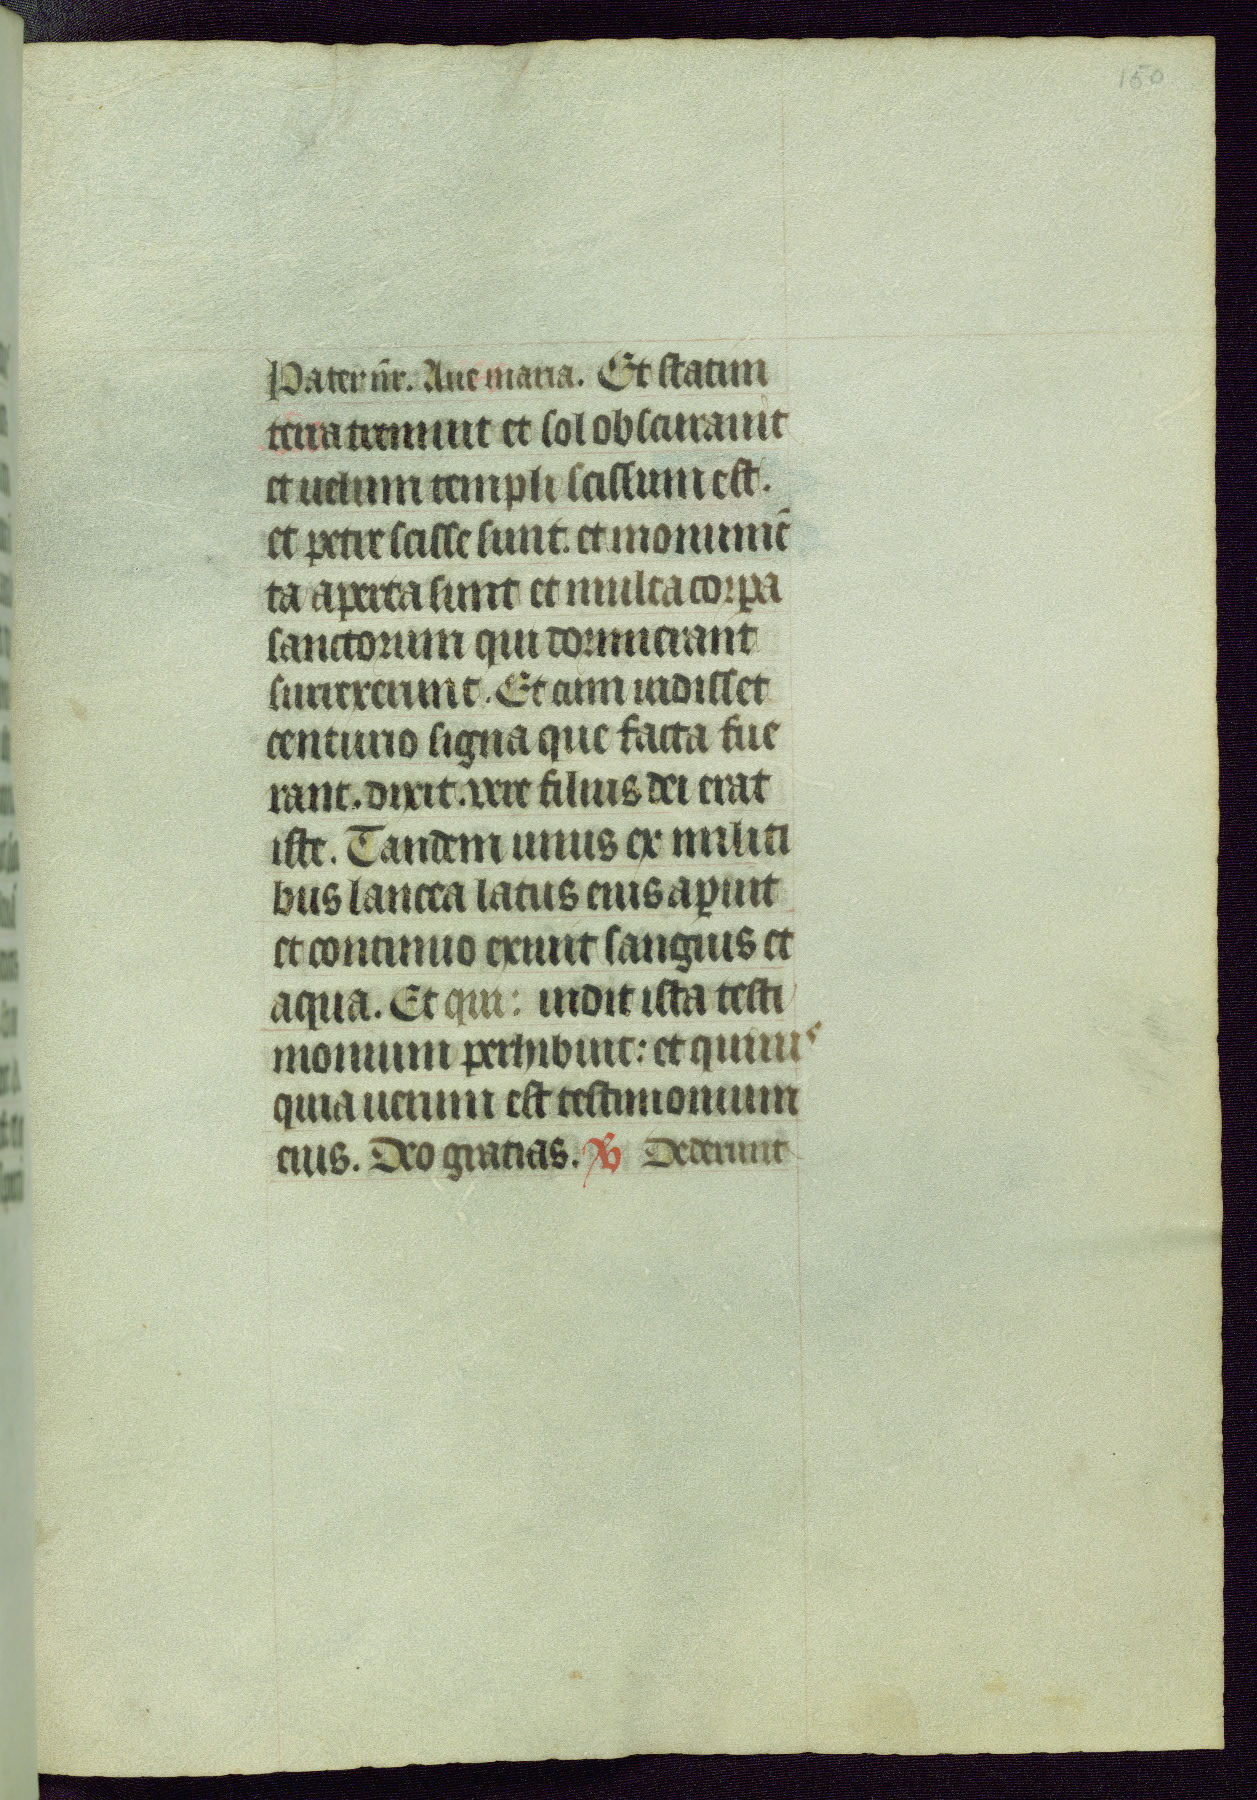 150
Pater nr̄. Aue maria. Et statim
terra tremuit et sol obscurauit
et uelum templi scissum est.
et petre scisse sunt. et monumē
ta aperta sunt et multa corpa
sanctorum qui dormierant
surrexerunt. Et cum uidisset
centurio signa que facta fue
rant. dixit. vere filius dei erat
iste. Tandem unus ex militi
bus lancea latus eius aperuit
et continuo exiuit sanguis et
aqua. Et qui: uidit ista testi
monium perhibuit: et
quia uerum est testimonium
eius. Deo gratias. Dederunt